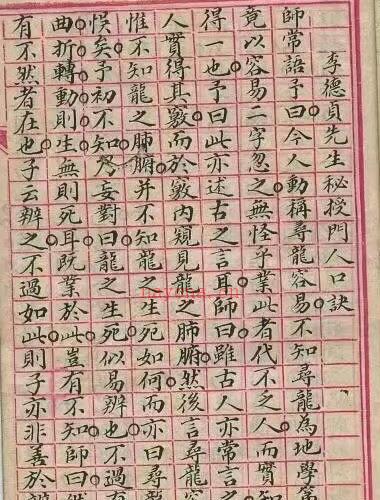 李德貞先生秘授門人口訣
師常語予曰今人動稱尋龍容易不知尋龍為地學
竟以容易二字忽之無怪乎業此者代不乏人而實
得一也予曰此亦述古之言耳師曰雖古人亦常言之
人實得其竅而於竅內窺見龍之肺腑然後言尋龍
惟不知龍之肺腑并不知龍之生死如何而亦曰尋
悞矣予初不知乃妄對曰龍之生死似易辨也不過
曲折轉動則生無則死耳既業於此豈有不知師曰
有不然者在也子云辨之不過如此則子亦非善於